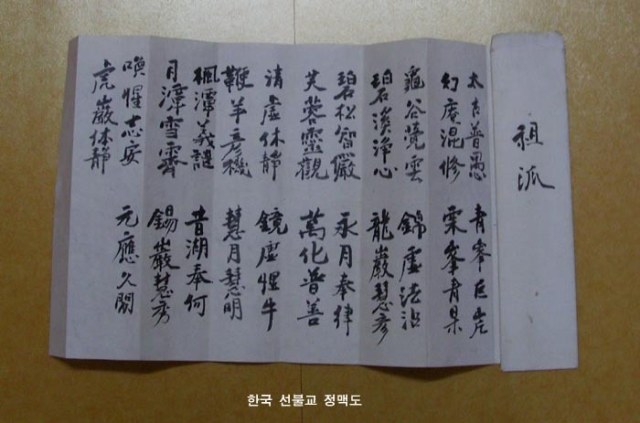 祖派
太古普愚
幻庵混修
龜谷覺雲
碧溪淨心
碧松智儼
芙蓉靈觀
清虛休静
鞭羊彦機
楓潭義諶
月潭雪霽
喚惺志安
虎巖体静
青峯巨岸
栗峯青杲
錦虛法沾
龍巖慧彦
永月奉律
萬化普善
鏡虛惺牛
慧月慧明
昔湖奉何
錫巖慧秀
元應久閑
한국 선불교 정맥도